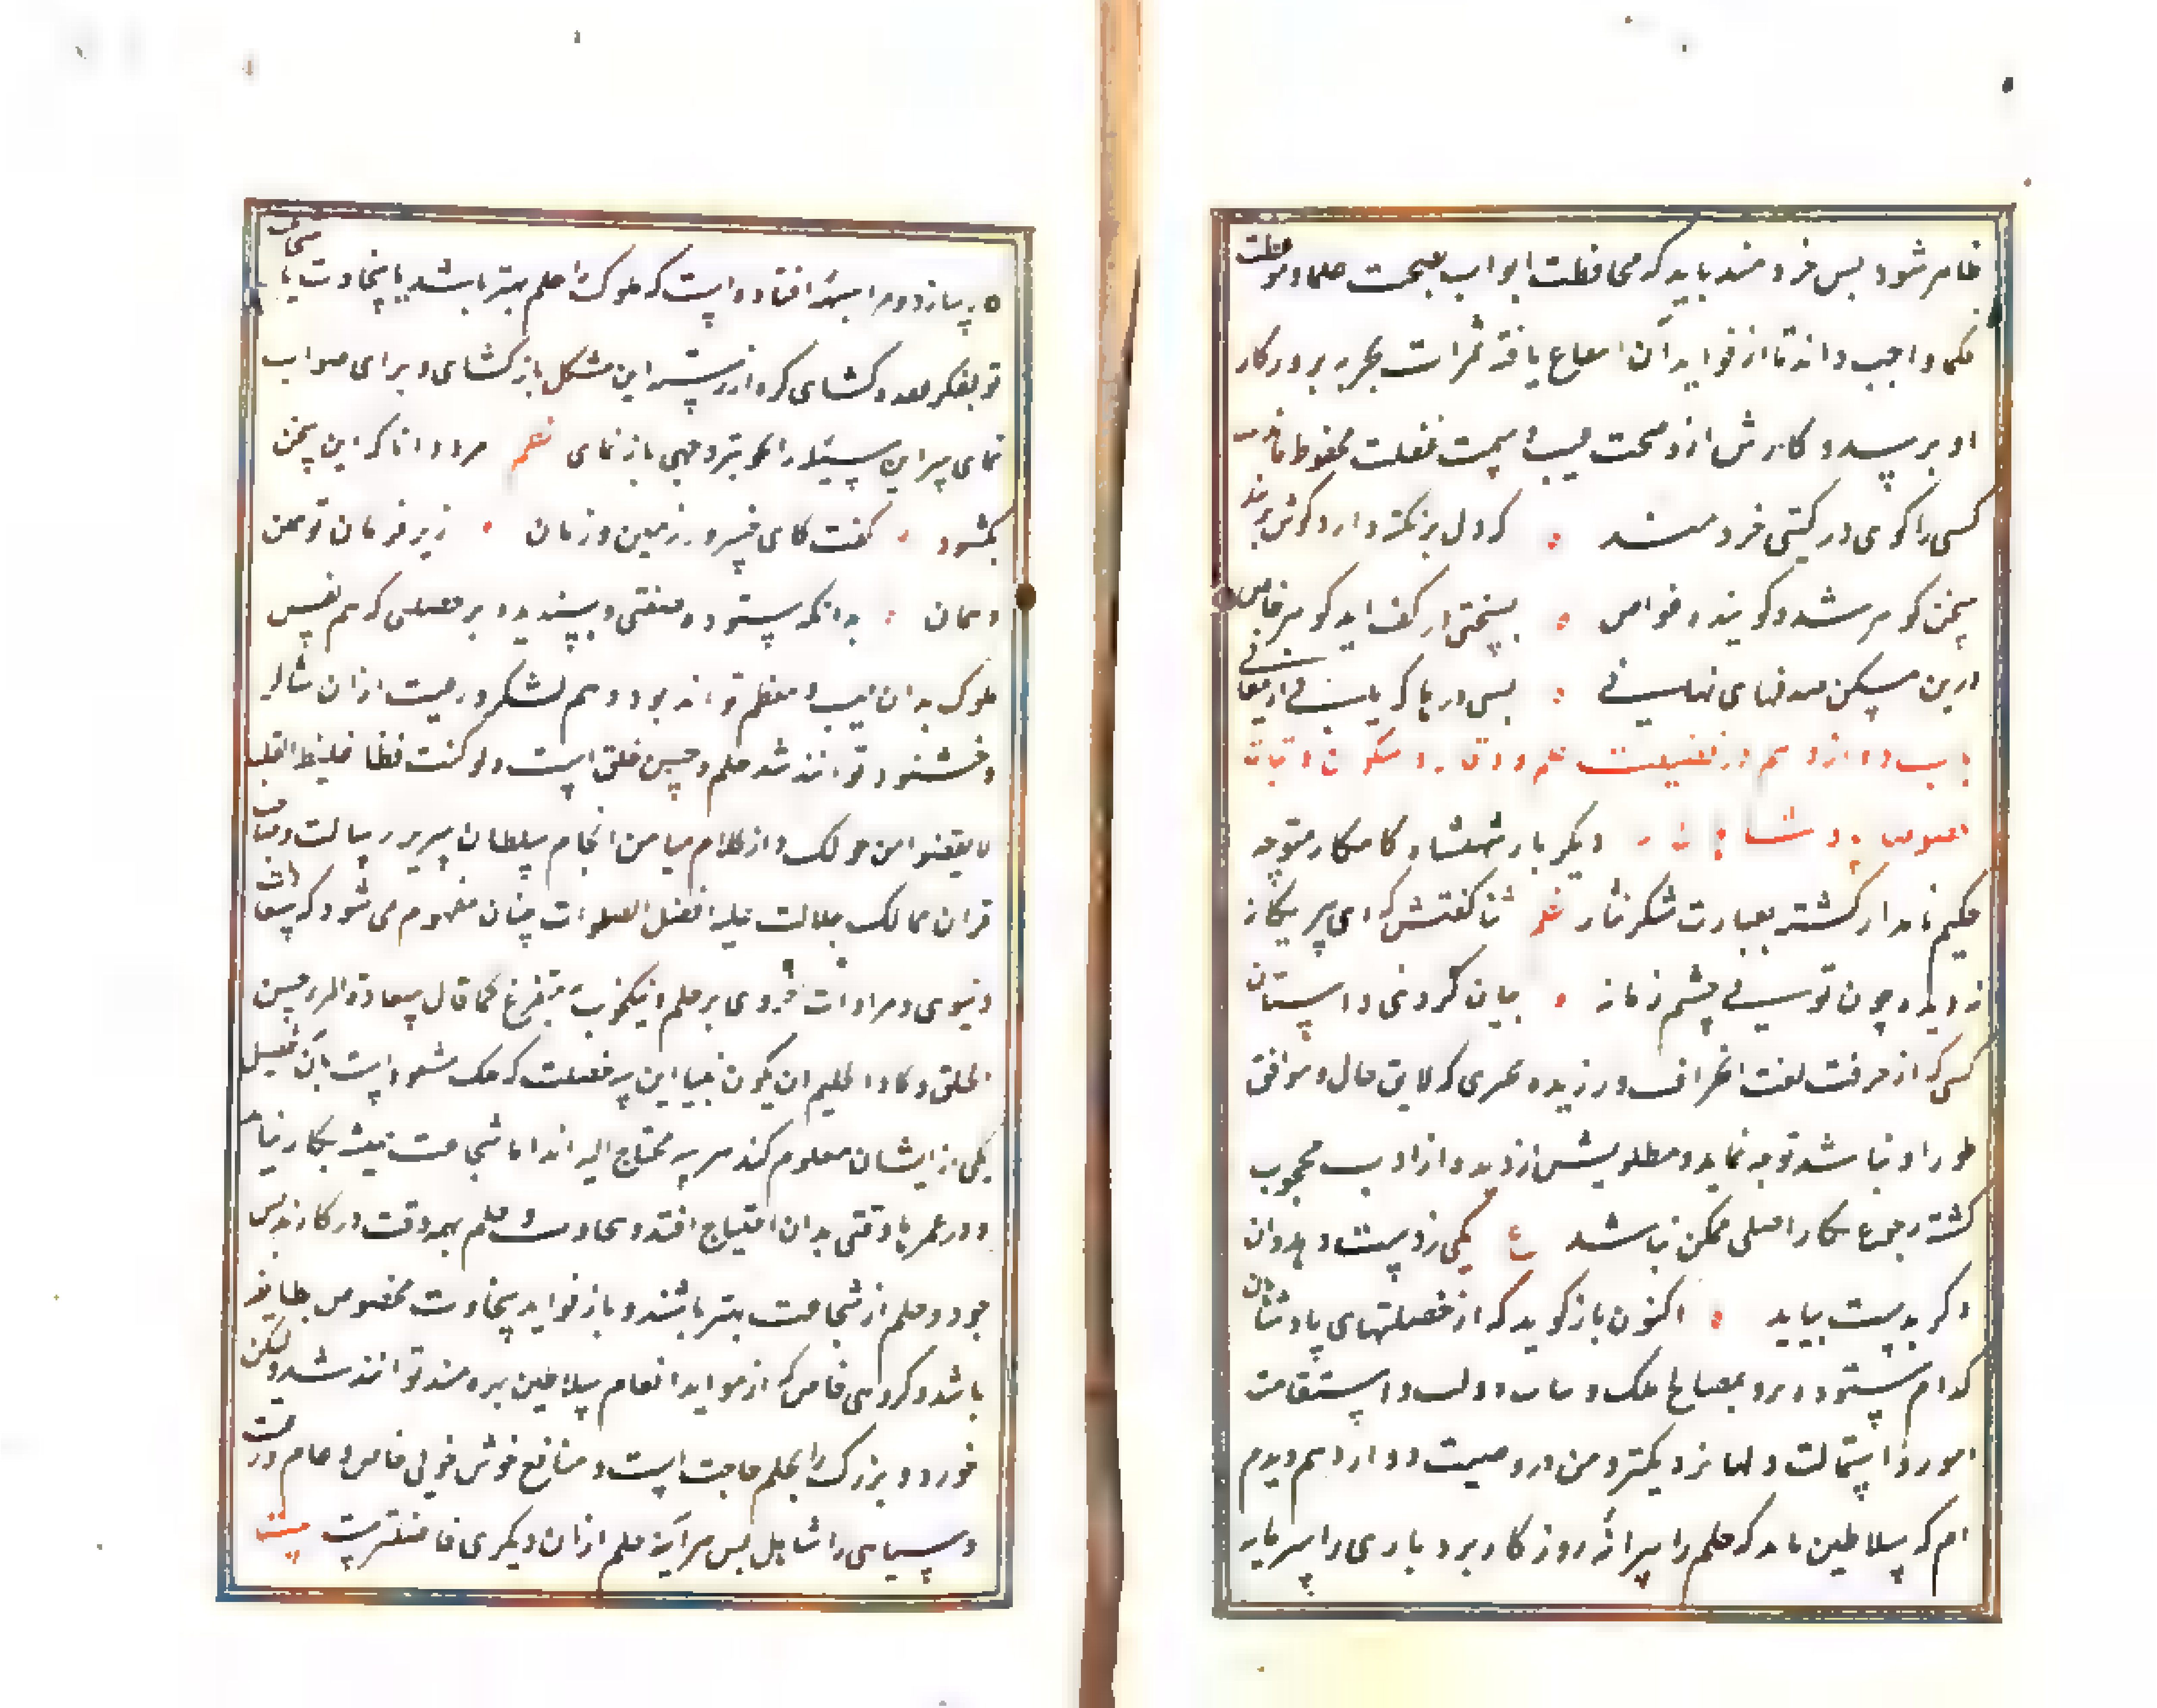 ظاهر شود پس خردمند باید که محافظت ابواب نصیحت علما و موعظت
حکما واجب داند تا از فواید آن امتاع یافته ثمرات تجربه بروزکار
او برسد و کارش از وصمت عیب و سمت غفلت محفوظ ماند
کسی را کوی در کیتی خردمند ؛ که دل بر نکته دارد کوش بر پند
سخن کوهر شد و کوینده غواص ؛ بسختی در کف اید کوهر خاص
درین مسکن صدفهای نهانی ؛ بسی دریا که یابی از معانی
باب دوازدهم در فضیلت حلم و وقار و سکون و ثبات
خصوص پادشاهان را دیکر بار شهنشاه کامکار متوجه
حکیم نامدار کشته بعبارت شکر نثار شعر ثنا کفتش که ای پیر یکانه
ندیده چون تویی چشم زمانه ؛ بیان کردی داستان
کسی که از حرفت لفت انحراف ورزیده بحری که لایق حال و موافق
طور او نباشد توجه نماید و مطلوبش از دیده و از ادب محجوب
کشته رجوع بکار اصلی ممکن نباشد ع یکی ز دست دهد وان
دکر بدست بیاید ؛ اکنون بازکوید که از خصلتهای پادشاهان
کدام ستوده‌تر و بمصالح ملک و ثبات دولت و استقامت
امور و استمالت دلها نزدیکتر و من در وصیت دوازدهم دیدم
ام که سلاطین باید که حلم را پیرایهٔ روزکار و بردباری را سرمایه
سازد و مرا شبهه افتاده است که ملوک را حلم بهتر باشد یا سخاوت یا شجاعت
تو بفکر عقده کشای کره از رشته این مشکل باز کشای و برای صواب
نمای سر این مسئله را بخوبتر وجهی باز نمای شعر مرد دانا که این سخن
بشنود ؛ کفت کای خسرو زمین و زمان ؛ زیر فرمان تو مهن
و مهان ؛ بدانکه ستوده صفتی و پسندیده‌تر خصلتی که هم نفس
ملوک بدان مهیب و معظم تواند بود و هم لشکر و رعیت از آن شاکر
و خشنود توانند شد حلم و حسن خلق است و لو کنت فظا غلیظ القلب
لانفضوا من حولک و از کلام میامن انجام سلطان سریر رسالت و صاحب
قران ممالک جلالت علیه افضل الصلوات چنان مفهوم می‌شود که سعادات
دنیوی و مرادات اخروی بر حلم و نیکخویی متفرع کما قال سعادة المرء حسن
الخلق و کاد الحلیم ان یکون نبیا این سه خصلت که ملک شمرده است بآن تفصیل
یکی از ایشان معلوم کند هر سه محتاج الیه اند اما شجاعت همیشه بکار نیاید
و در عمرها وقتی بدان احتیاج افتد و سخاوت و حلم همه وقت در کارند پس
جود و حلم از شجاعت بهتر باشند و باز فواید سخاوت مخصوص بطایفه
باشد و کروهی خاص که از مواید انعام سلاطین بهره‌مند توانند شد و لکن
خورد و بزرک را بحلم حاجت است و منافع خوش خویی خاص و عام و رعیت
و سپاهی را شامل پس هر آینه حلم از آن دیکری فاضلتر است بیت